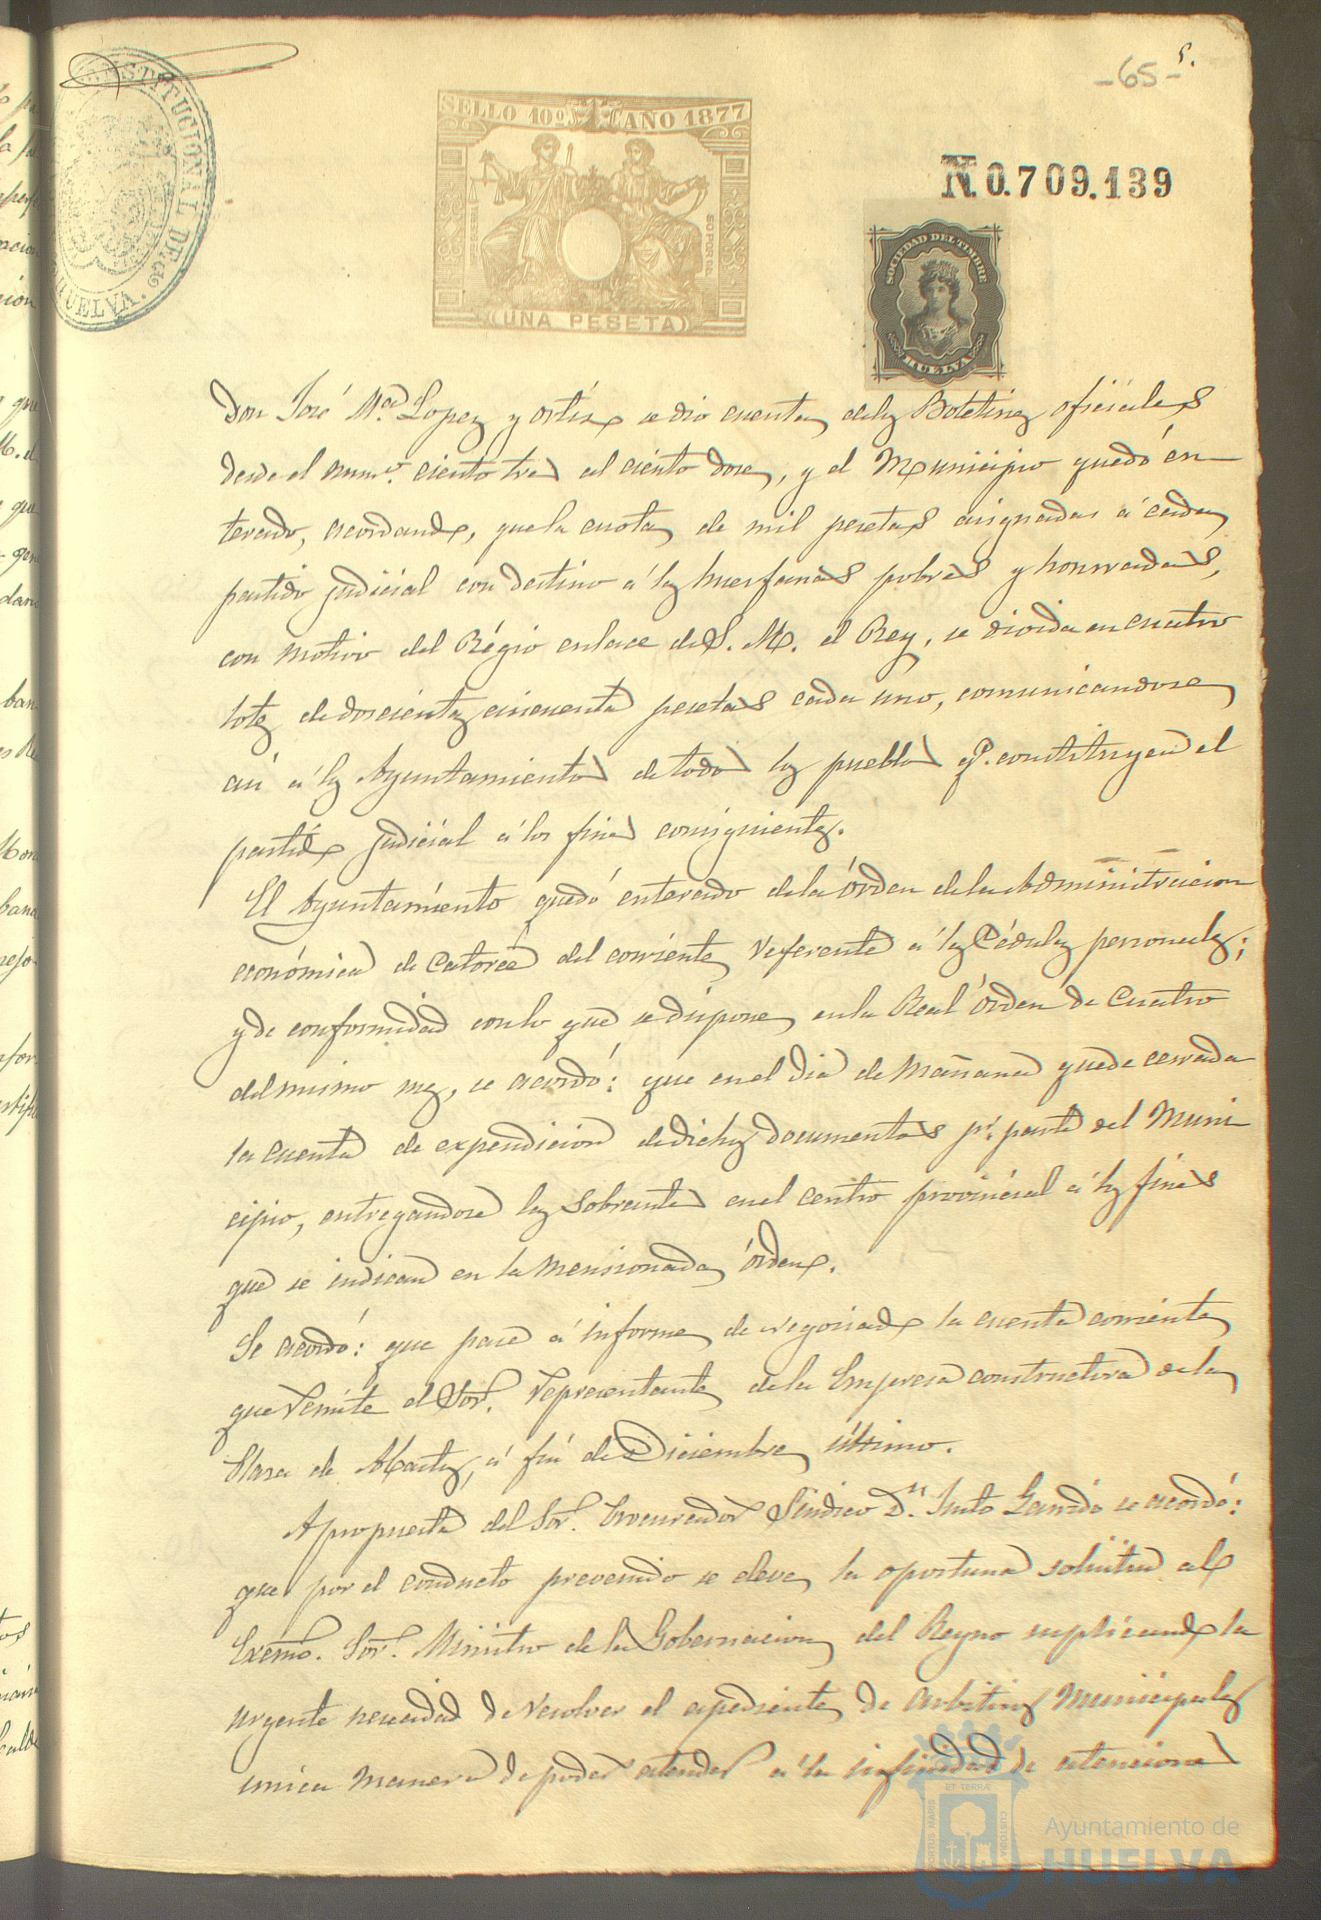 5.
-65-
CONSTITUCIONAL DE HUELVA.
SELLO 10º AÑO 1877
UNA PESETA
N. 0.709.139
SOCIEDAD DEL TIMBRE
HUELVA
Don José Mª Lopez y Ortiz se dió cuenta de los Boletines oficiales
desde el numº ciento tres al ciento doce, y el Municipio quedó en
terado, acordando, que la cuota de mil pesetas asignadas á cada
partido judicial con destino á las huerfanas pobres y honrradas,
con motivo del Régio enlace de S. M. el Rey, se divida en cuatro
lotes de doscientas cincuenta pesetas cada uno, comunicandose
así á los Ayuntamientos de todos los pueblos q. constituyen el
partido judicial á los fines consiguientes.
El Ayuntamiento quedó enterado de la Órden de la Administracion
económica de catorce del corriente referente á las Cédulas personales;
y de conformidad con lo que se dispone en la Real Órden de cuatro
del mismo mes, se acordó: que en el dia de mañana quede cerrada
la cuenta de expendicion de dichos documentos pr. parte del Muni
cipio, entregandose las sobrantes en el centro provincial á los fines
que se indican en la mensionada órden.
Se acordó: que pase á informe de negociado la cuenta corriente
que remite el Sor. representante de la Empresa constructora de la
Plaza de Abastos, á fin de Diciembre último.
A propuesta del Sor. Procurador Síndico Dn. Justo Garrido se acordó:
que por el conducto prevenido se eleve la oportuna solicitud al
Excmo. Sor. Ministro de la Gobernacion del Reyno suplicando la
urgente necesidad de resolver el expediente de arbitrios Municipales
unica manera de poder atender á la infinidad de atenciones
ET TERRÆ
PORTUS MARIS
CUSTODIA
Ayuntamiento de
HUELVA